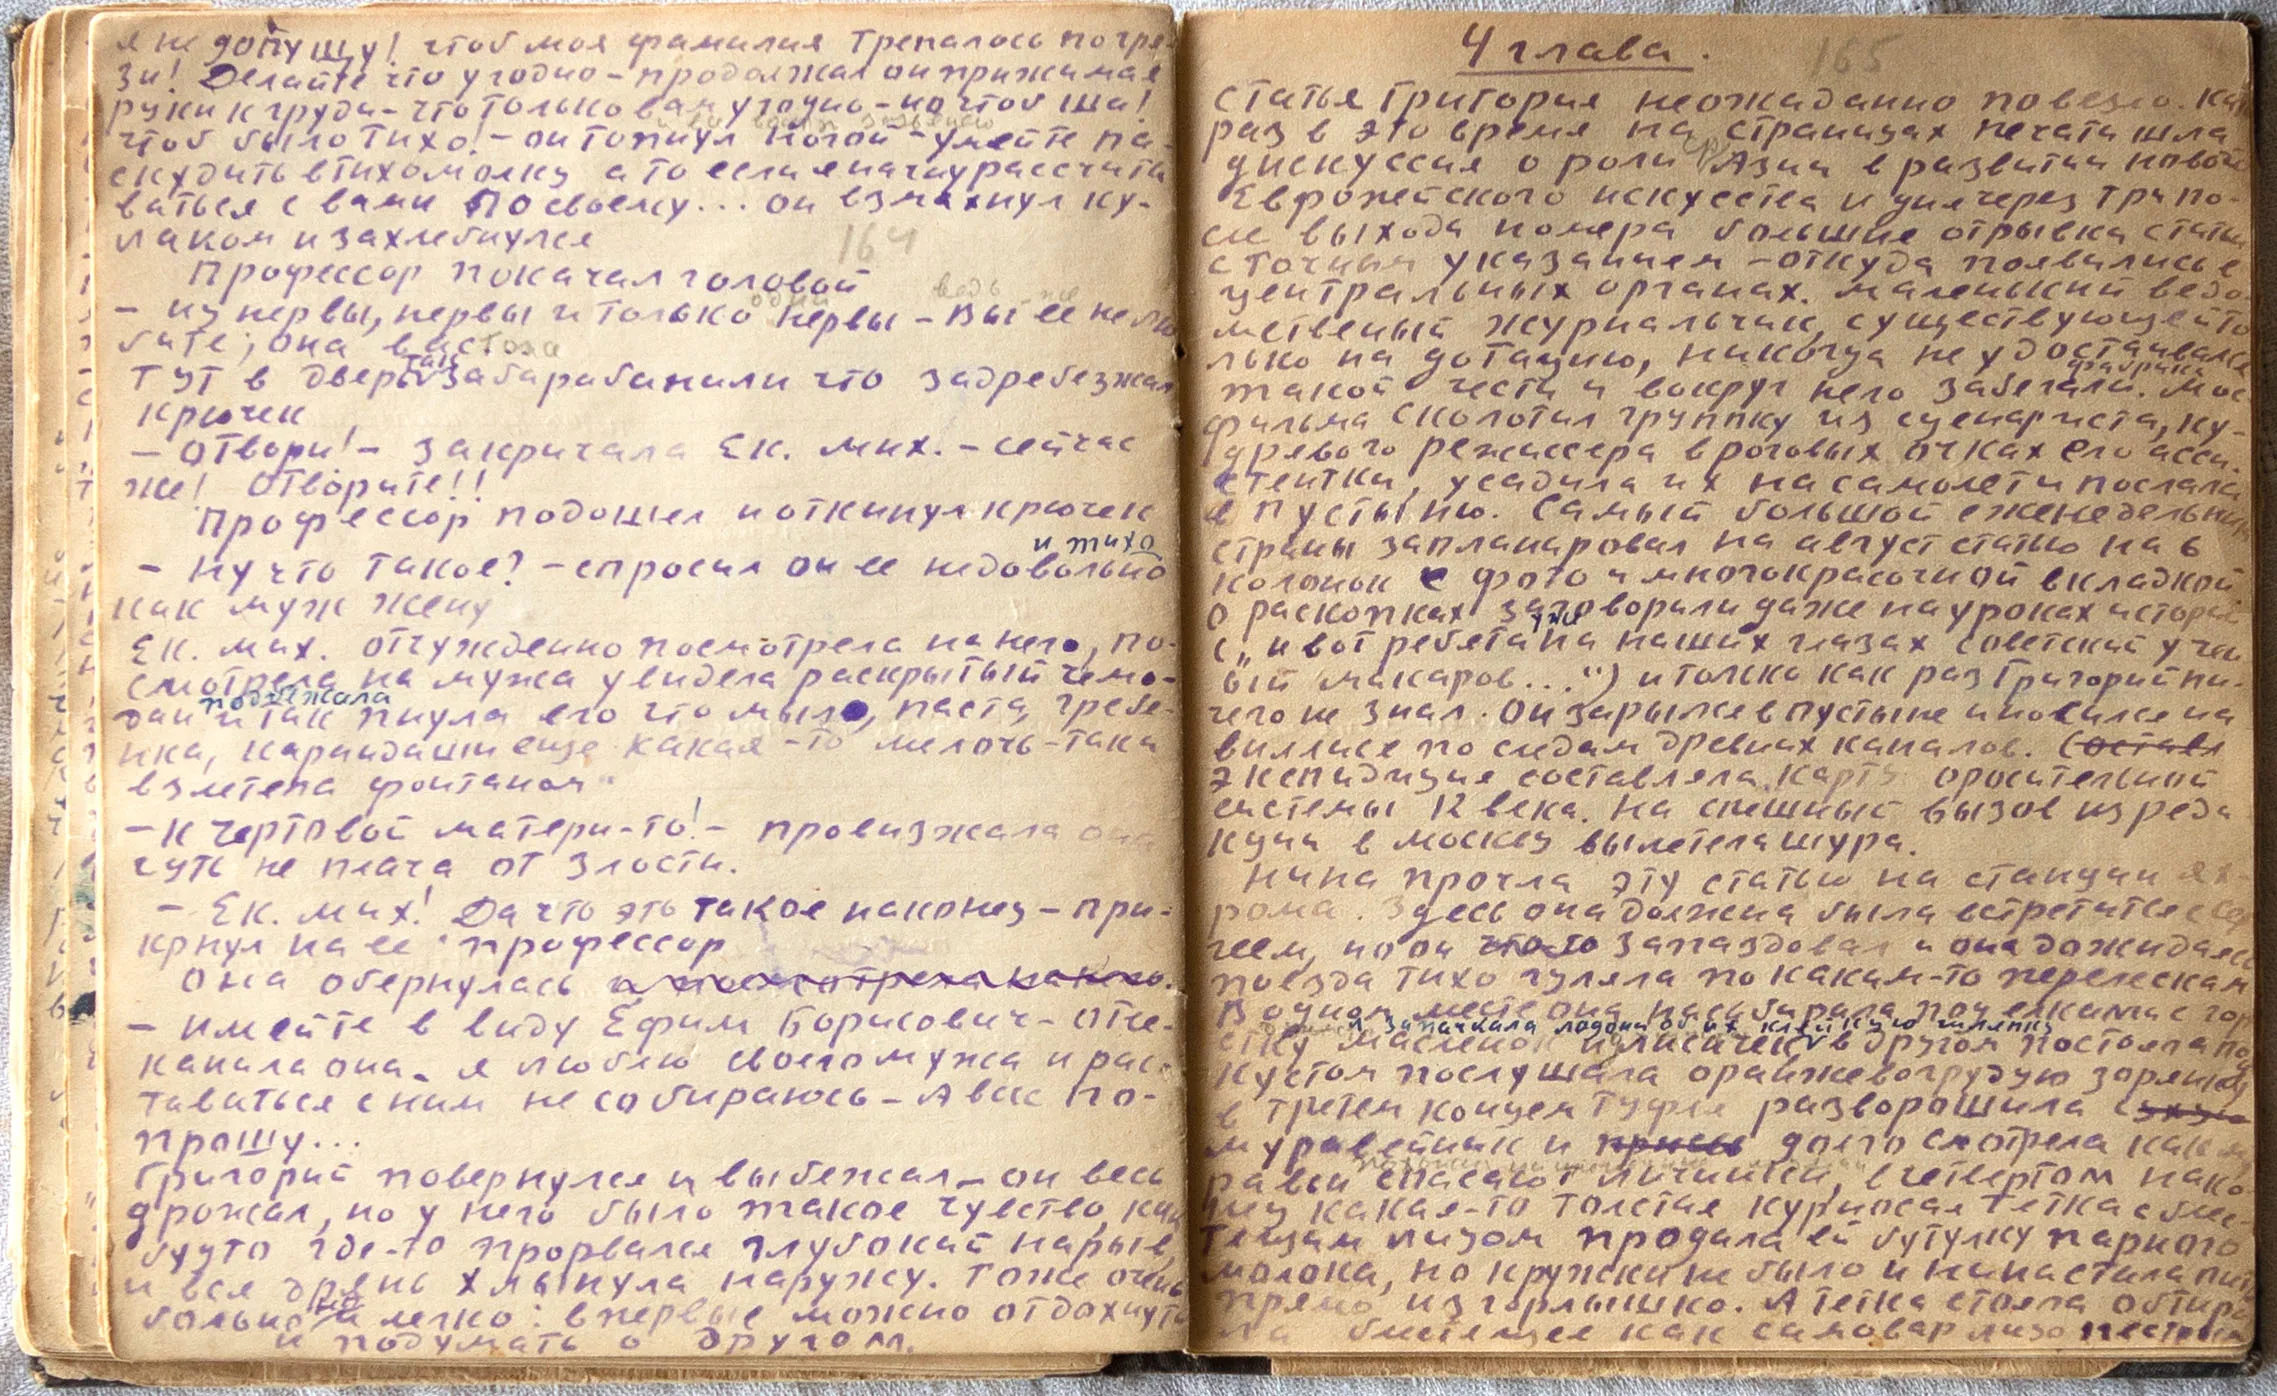 я не допущу! чтоб моя фамилия трепалось по гря-
зи! Делайте что угодно – продолжал он прижимая
руки к груди – что только вам угодно – но чтоб ша!
чтоб было тихо! – он топнул ногой – умейте па-
скудить втихомолку а то если я начну рассчиты
ваться с вами по своему... он взмахнул ку-
лаком и захлебнулся
164
Профессор покачал головой
одни ведь не
– ну нервы, нервы и только нервы – Вы ее не лю
бите, она вас тоже
так
тут в дверь забарабанили что задребезжал
крючек
– Отвори! – закричала Ек. мих. – сейчас
же! Отворите!!
Профессор подошел и откинул крючек
и тихо
– ну что такое? – спросил он ее недовольно
как муж жену
Ек. мих. отчужденно посмотрела на него, по-
смотрела на мужа увидела раскрытый чемо-
подбежала
дан и так пнула его что мыло, паста, гребе-
нка, карандаши еще какая-то мелочь-таки
взлетела фонтаном
– к чертовой матери-то! – провизжала она
чуть не плача от злости.
– Ек. мих! Да что это такое наконец – при-
крнул на ее профессор
она обернулась и посмотрела на него.
– имейте в виду Ефим Борисович – отче-
канила она – я люблю своего мужа и рас-
таваться с ним не собираюсь – А вас по-
прошу...
Григорий повернулся и выбежал – он весь
дрожал, но у него было такое чувство, как
будто где-то прорвался глубокий нарыв,
и вся дрянь хлынула наружу. Тоже очень
но
больно и легко: впервые можно отдохнуть
и подумать о другом.
4 глава.
165
статья Григория неожаданно повезло. как
раз в это время на страницах печати шла
ср
дискуссия о роли Азии в развитии нового
Европейского искусства и дня через три по-
сле выхода номера большие отрывки статьи
с точным указанием – откуда появились в
центральных органах. маленький ведо-
мственый журнальчик, существующей то
лько на дотацию, никогда не удостаивался
фабрика
такой чести и вокруг него забегали. Мос
фильма сколотил группку из сценариста, ку-
дрявого режиссера в роговых очках его асси-
стентки, усадила их на самолет и послала
в пустыню. Самый большой еженедельник
страны запланаровал на август статью на 6
колонок с фото и многокрасочной вкладкой
о раскопках заговорили даже на уроках истории
уже
(„и вот ребята на наших глазах советский учен
ый макаров...") и только как раз Григорий ни-
чего не знал. Он зарылся в пустыне и носился на
виллисе по следам древних каналов. Оставл
Экспидиция составляла карту оросительной
системы 12 века. На спешный вызов из реда
кции в москву вылетела шура.
Нина прочла эту статью на станции Ях-
рома. Здесь она должна была встретиться с Сер
геем, но он что-то запаздовал и она дожидаясь
поезда тихо гуляла по каким-то перелескам
В одном месте она насабирала под елками с гор
и запачкала ладони об их клейкую шляпку
стку масленок и лисичек, в другом постояла под
кустом послушала оранжевогрудую зорянку
в третем концем туфли разворошила
муравейник и долго смотрела как му
равьи спасают личинки, в четвертом нако-
нец какая-то толстая курносая тетка с блес-
тящим лизом продала ей бутулку парного
молока, но кружки не было и нина стала пить
прямо из горлышко. А тетка стояла обтира
ла блестящее как самовар лизо пестрым